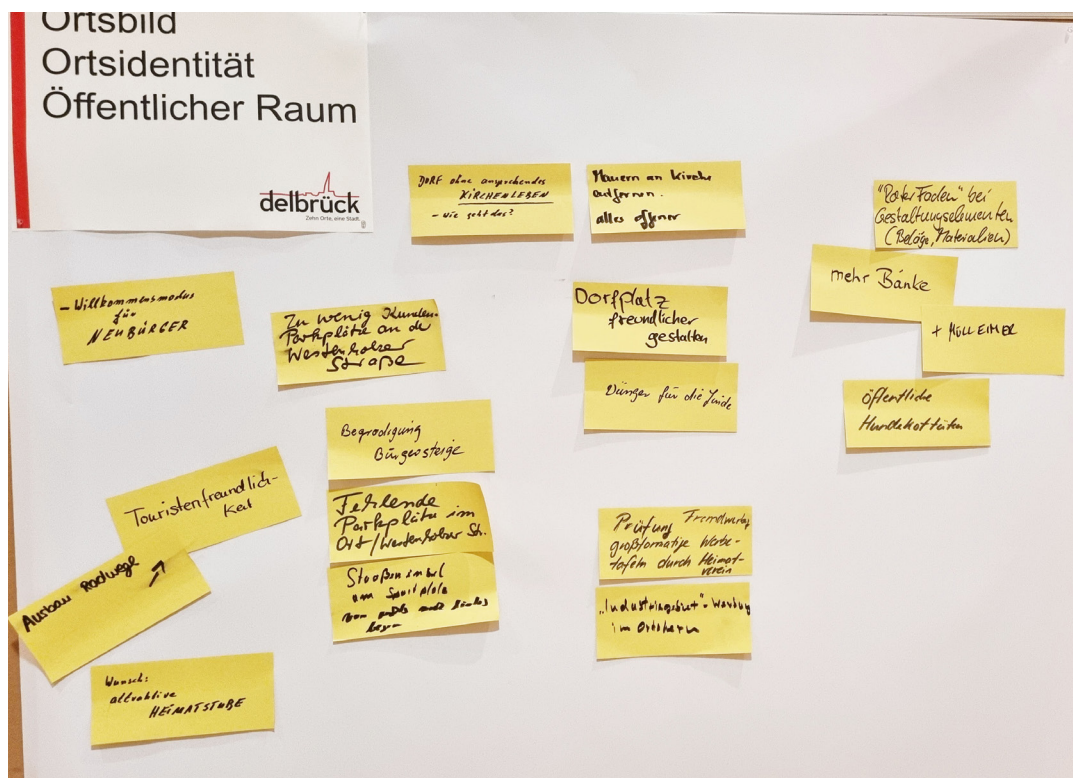 Ortsbild
Ortsidentität
Öffentlicher Raum
delbrück
Zehn Orte, eine Stadt.
DORF ohne ansprechendes
KIRCHENLEBEN
- wie geht das?
Mauern an Kirche
entfernen.
alles offener
"Roter Faden" bei
Gestaltungselementen
(Beläge, Materialien)
mehr Bänke
+ MÜLLEIMER
öffentliche
Hundekottüten
- Willkommensmodus
für
NEUBÜRGER
Zu wenig Kunden-
Parkplätze an der
Westenholzer
Straße
Dorfplatz
freundlicher
gestalten
Dünger für die Linde
Begradigung
Bürgersteige
Fehlende
Parkplätze im
Ort/Westenholzer Str.
am Sportplatz
Touristenfreundlich-
keit
Ausbau Radwege
Prüfung Fremdwerbg
großformatige Werbe-
tafeln durch Heimat-
verein
"Industriegebiet"-Werbung
im Ortskern
Wunsch:
attraktive
HEIMATSTUBE